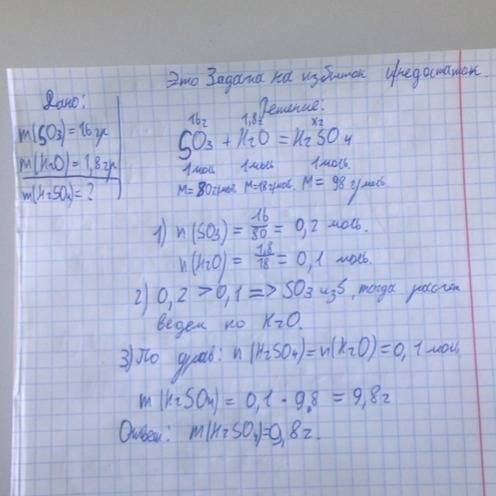 Это Задача на избыток и недостаток.
Дано:
m(SO3) = 16гр
m(H2O) = 1,8гр
m(H2SO4) = ?
Решение:
16г 1,8г xг
SO3 + H2O = H2SO4
1моль 1моль 1моль
M=80г/моль M=18г/моль M=98г/моль
1) n(SO3) = 16/80 = 0,2 моль.
n(H2O) = 1,8/18 = 0,1 моль.
2) 0,2 > 0,1 => SO3 изб, тогда расчет
ведем по H2O.
3) По урав: n(H2SO4) = n(H2O) = 0,1 моль
m(H2SO4) = 0,1 · 9,8 = 9,8г
Ответ: m(H2SO4)=9,8г.